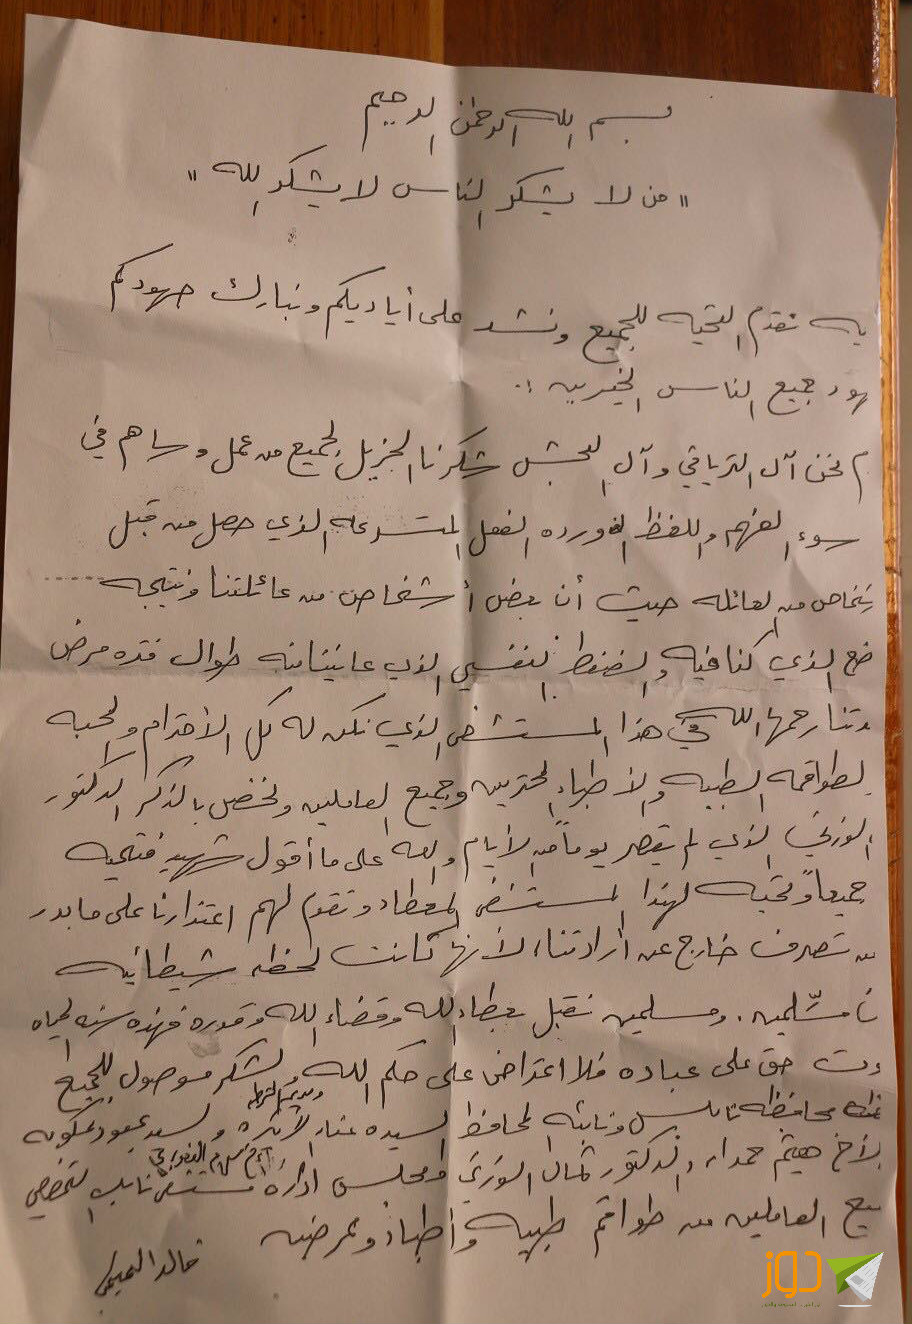 بسم الله الرحمن الرحيم
"من لا يشكر الناس لا يشكر الله"
يه نقدم التحيه للجميع ونشد على أياديكم ونبارك جهودكم
هود جميع الناس الخيرين :
نحن آل الترياقي وآل شكرنا الجزيل لجميع من عمل وساهم في
سوء الفهم واللغط ورده الفعل المتسرعه الذي حصل من قبل
شخاص من لعائله حيث أن بعض أشخاص من عائلتنا ونتيجه
ضع الذي كنا فيه والضغط النفسي الذي عانيناه طوال فتره مرض
دتنا رحمها الله في هذا المستشفى الذي نكن له كل الأحترام والمحبه
لطواقمه الطبيه والأطباء المحترمين وجميع العاملين ونخص بالذكر الدكتور
الوزني الذي لم يقصر يوماً من الأيام والله على ما أقول شهيد فتحيه
جميعاً وتحيه لهذا المستشفى المعطاء ونقدم لهم اعتذارنا على ما بدر
من تصرف خارج عن أرادتنا، لأنها كانت لحظه شيطانيه
نا مسّلمين ومسلمين نقبل بعطاء الله وقضاء الله وقدره فهذه سنه الحياه
وت حق على عباده فلا اعتراض على حكم الله والشكر موصول للجميع
ومدير الشرطه
محافظه نابلس ونائبه المحافظ السيده عنان الأتيره والسيد
لأخ هيثم حمدان والدكتور كمال الوزني ومجلس اداره مستشفى نابلس التخصصي
يع العاملين من طواقم طبيه وأطباء وممرضه
خالد التميمي
دوز